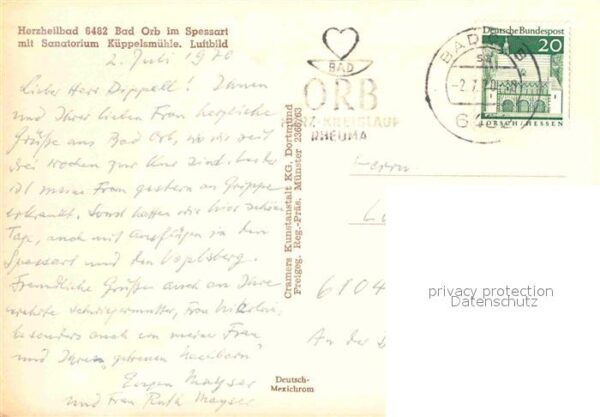 Herzheilbad 6482 Bad Orb im Spessart
mit Sanatorium Küppelsmühle. Luftbild
2. Juli 1970
Lieber Herr Deppell! Ihnen
und Ihrer lieben Frau herzliche
Grüße aus Bad Orb, wo wir seit
drei Wochen zur Kur sind. Leider
ist meine Frau gestern an Grippe
erkrankt. Sonst hatten wir hier schöne
Tage, auch mit Ausflügen in den
Spessart und den Vogelsberg.
Freundliche Grüße auch an Ihre
verehrte Schwiegermutter, Frau
besonders auch von meiner Frau
und Ihrem getreuen
Eugen Mayser
und Frau Ruth Mayser
Cramers Kunstanstalt KG, Dortmund
Freigeg. Reg.-Präs. Münster 2366/63
Deutsch-
Mexichrom
BAD
ORB
HERZ-KREISLAUF
RHEUMA
BAD ORB
6482
Deutsche Bundespost
20
LORSCH/HESSEN
Herrn
6104
An der
privacy protection
Datenschutz